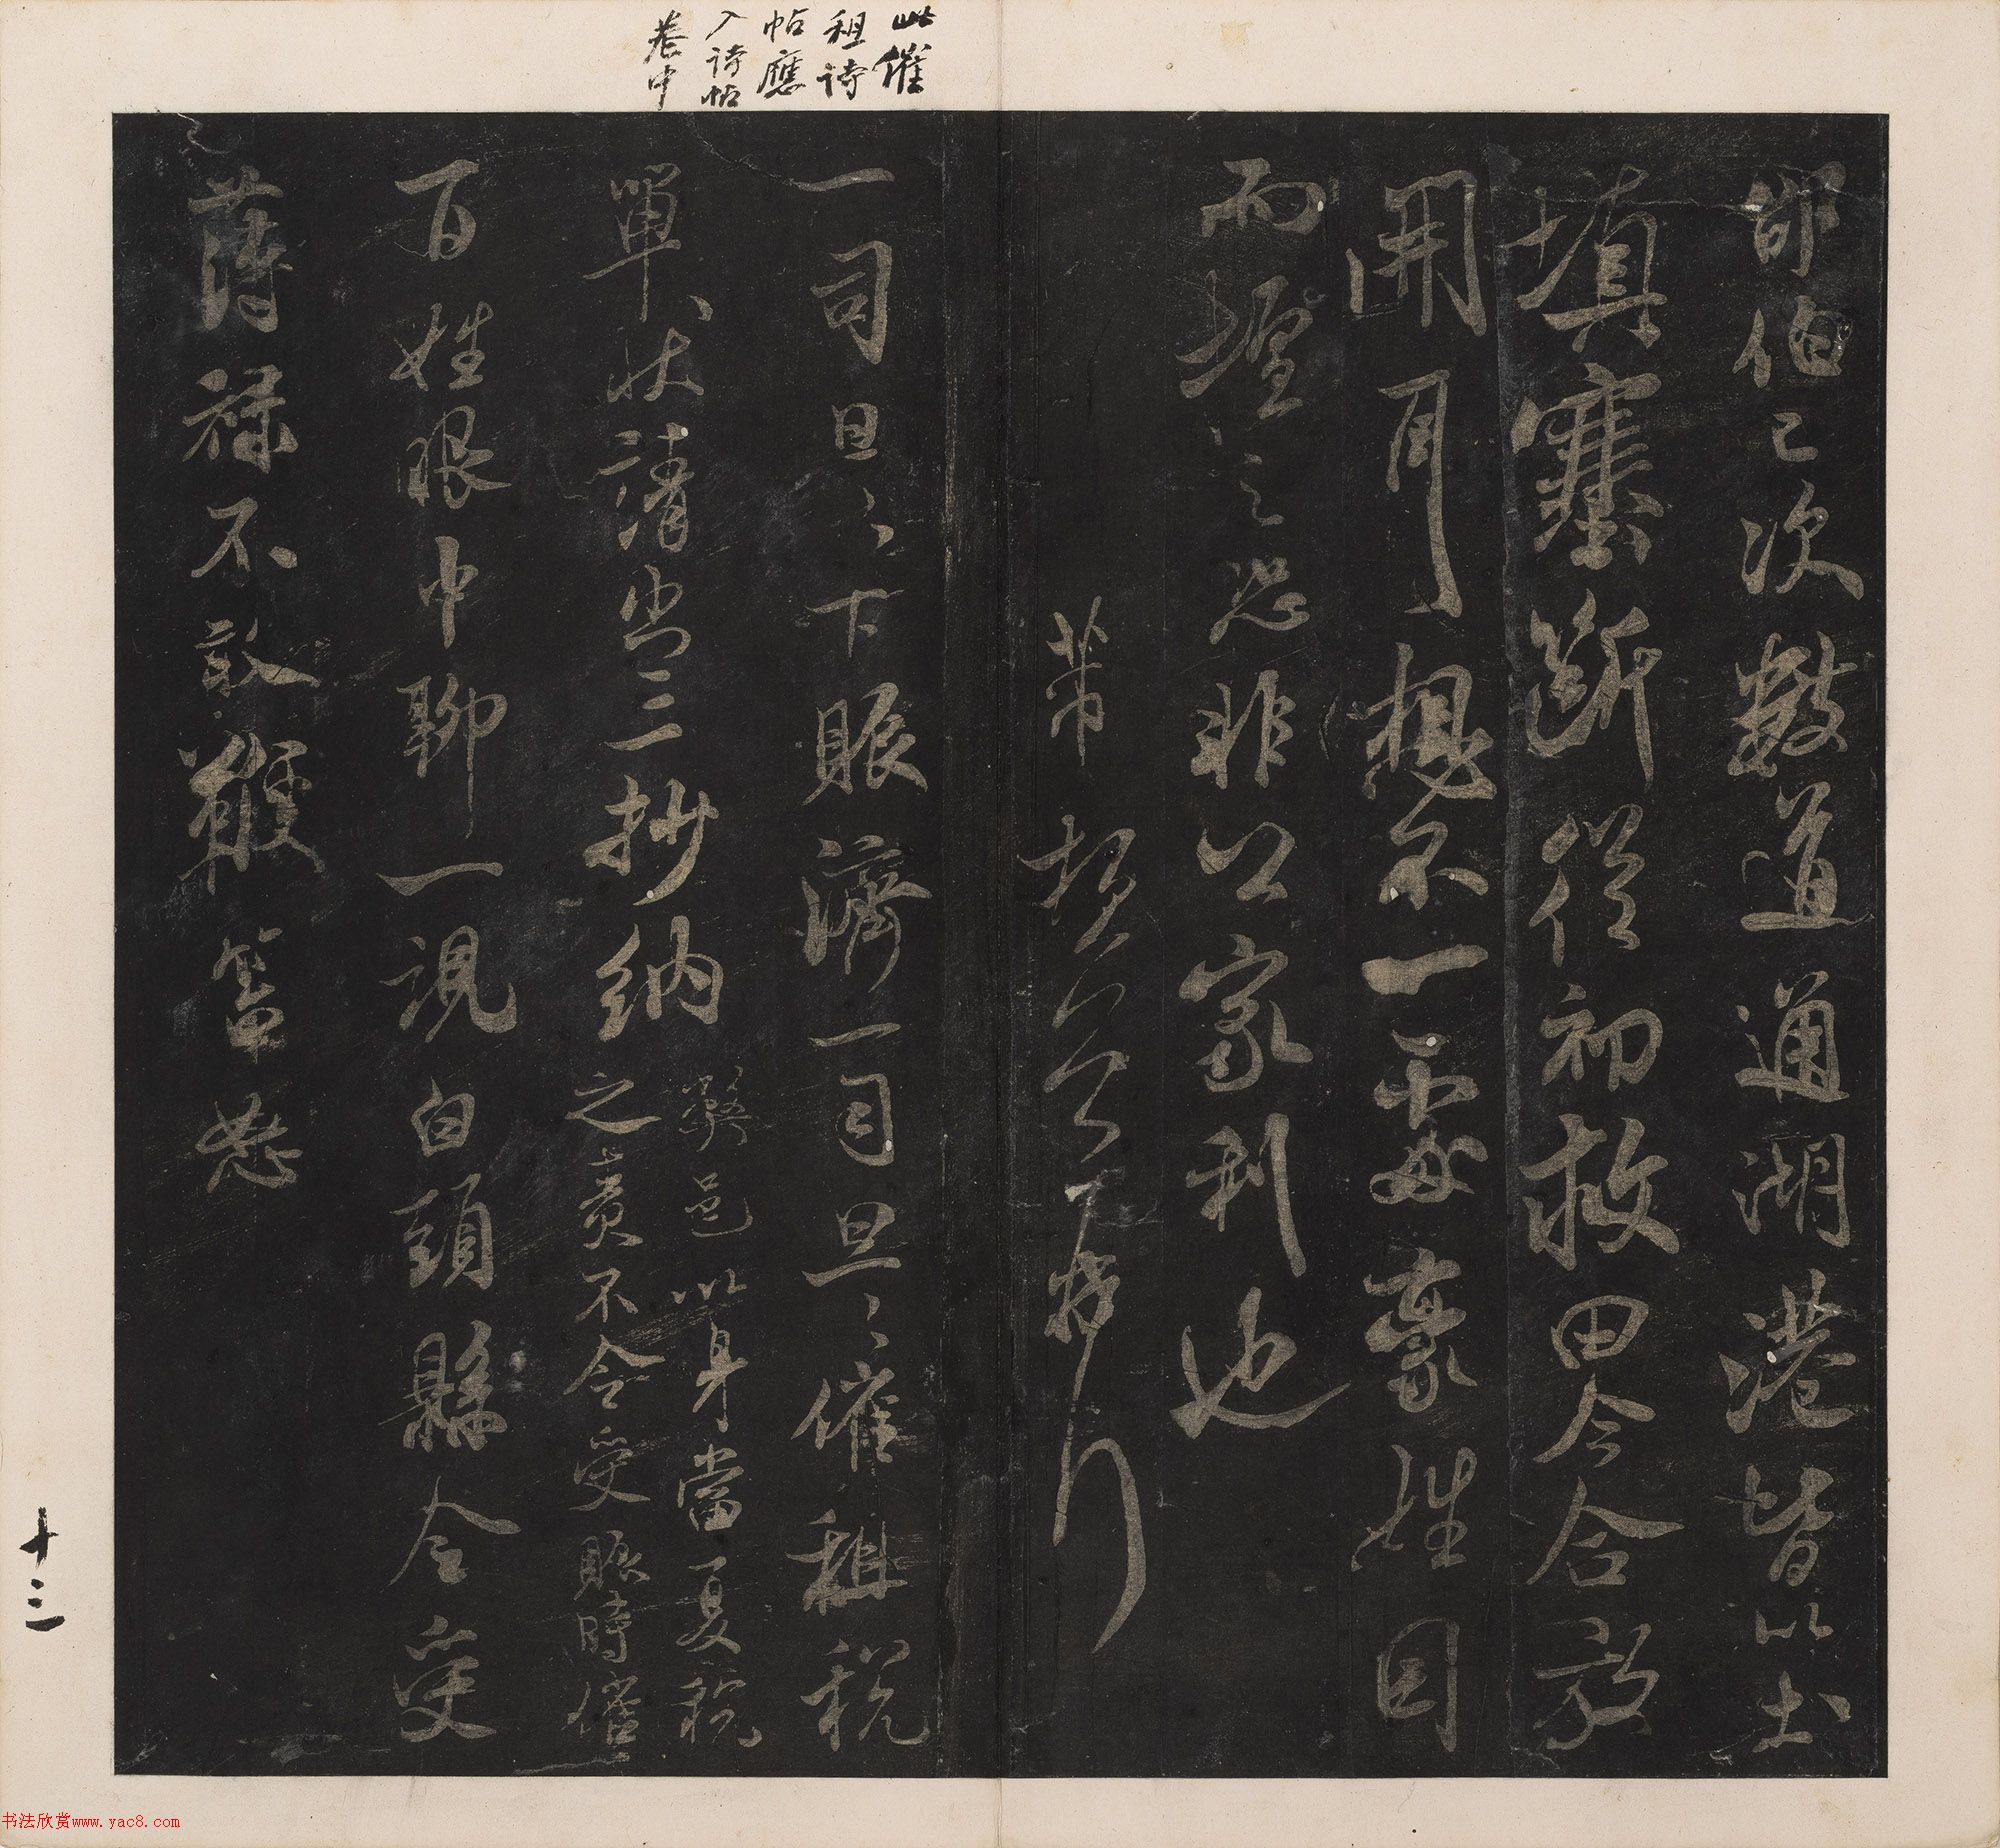 此催
租詩
帖應
入詩帖
卷中
邵伯已次數道通湖港皆以土
填塞斷從初救田今合敢
開用想不一處豪姓因
而堙之恐非公家利也
芾頓首
一司旦旦下賬濟一司旦旦催租税
單狀請出三抄納
弊邑以身當夏税
之責不令受賬時催
百姓眼中聊一視白頭縣令受
薄祿不敢鞭笞怒
十三
书法欣赏www.yac8.com